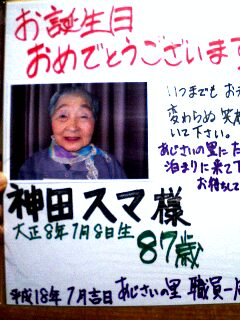 お誕生日
おめでとうございます
いつまでもお元
変わらぬ笑
いて下さい。
あじさいの里にた
泊まりに来て下
お待ちして
神田スマ様
大正8年7月8日生
87歳
平成18年7月吉日 あじさいの里 職員一同